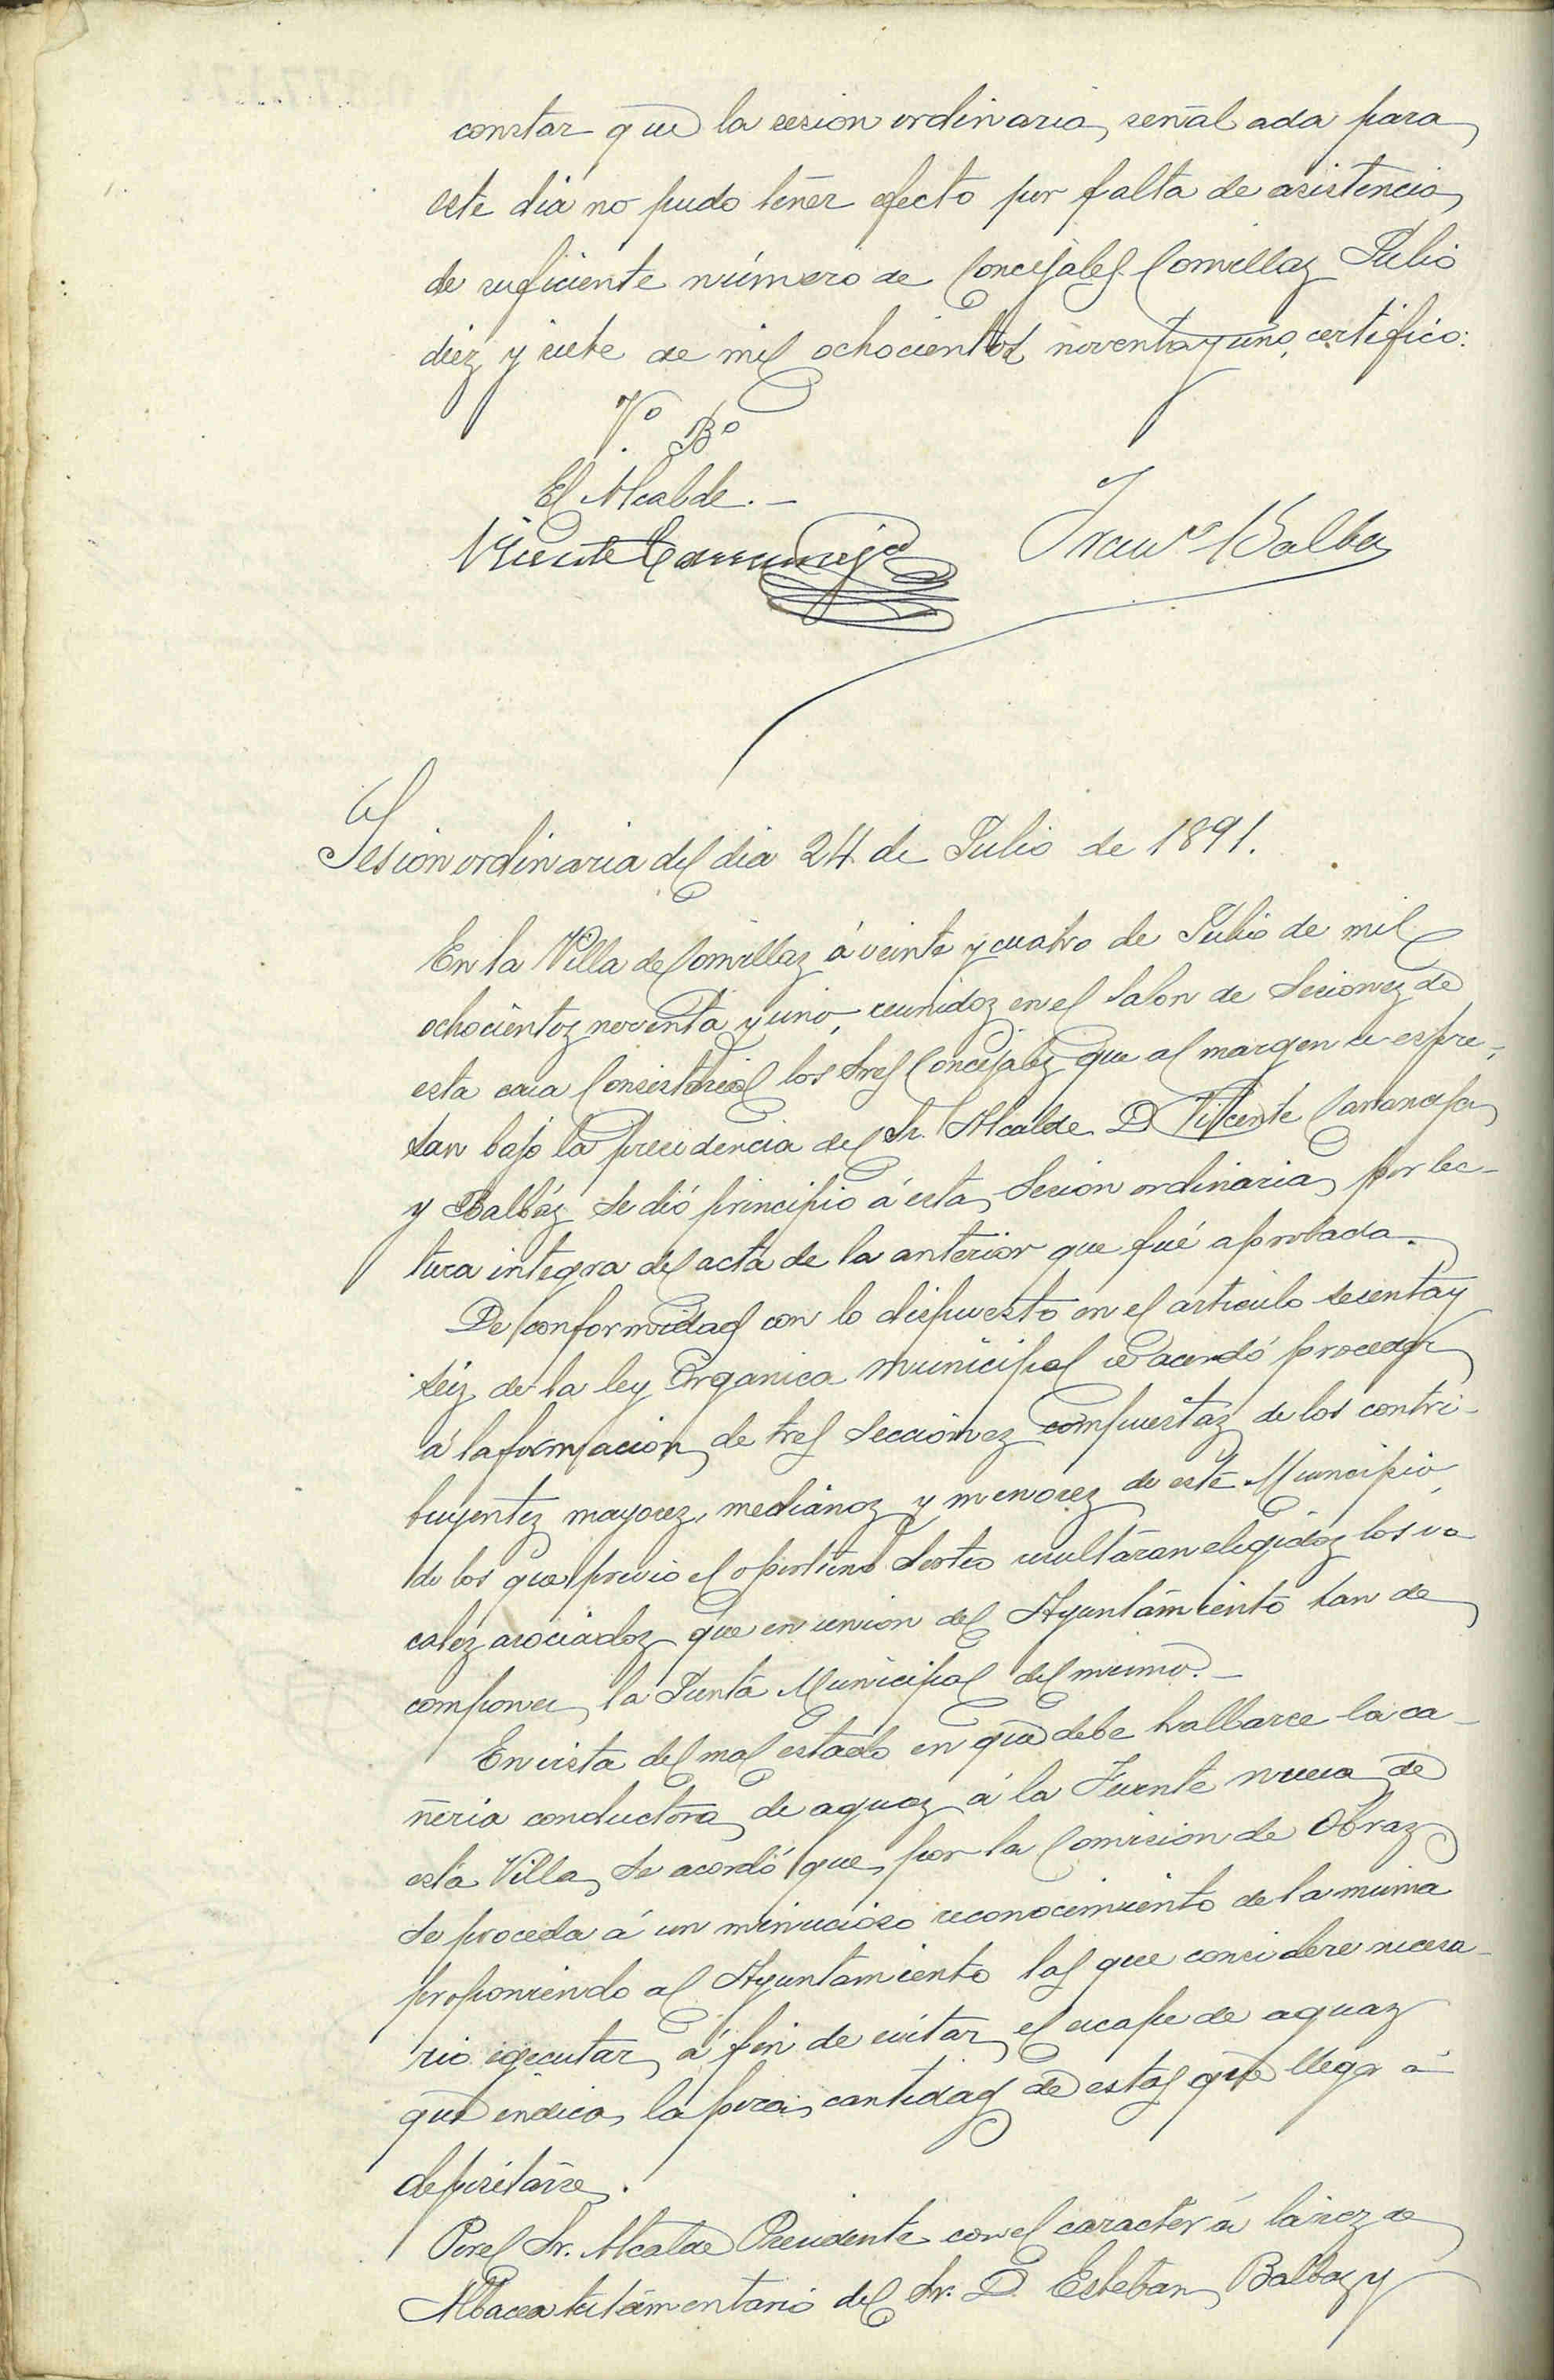 constar que la sesion ordinaria señalada para
este dia no pudo tener efecto por falta de asistencia
de suficiente número de Concejales. Comillas Julio
diez y siete de mil ochocientos noventa y uno, certifico:
Vº Bº
El Alcalde.-
Vicente Carranceja
Franº Balbas
Sesion ordinaria del dia 24 de Julio de 1891.
En la Villa de Comillas á veinte y cuatro de Julio de mil
ochocientos noventa y uno, reunidos en el Salon de Sesiones de
esta casa Consistorial los Sres Concejales que al margen se espre-
san bajo la presidencia del Sr. Alcalde D Vicente Carranceja
y Balbás, se dió principio á esta Sesion ordinaria por lec-
tura integra del acta de la anterior que fué aprobada.
De conformidad con lo dispuesto en el articulo sesenta y
seis de la ley Organica Municipal se acordó proceder
á la formacion de tres Secciones compuestas de los contri-
buyentes mayores, medianos y menores de este Municipio,
de los que previo el oportuno Sorteo resultaran elegidos los vo
cales asociados que en union del Ayuntamiento han de
componer la Junta Municipal del mismo.-
En vista del mal estado en que debe hallarse la ca-
ñeria conductora de aguas á la Fuente nueva de
esta Villa, se acordó que por la Comision de Obras
se proceda á un minucioso reconocimiento de la misma
proponiendo al Ayuntamiento las que considere necesa-
rio egecutar á fin de evitar el escape de aguas
que indica la poca cantidad de estas que llega á
depositarse.
Por el Sr. Alcalde Presidente con el caracter á la vez de
Albacea testamentario del Sr. D. Esteban Balbas y